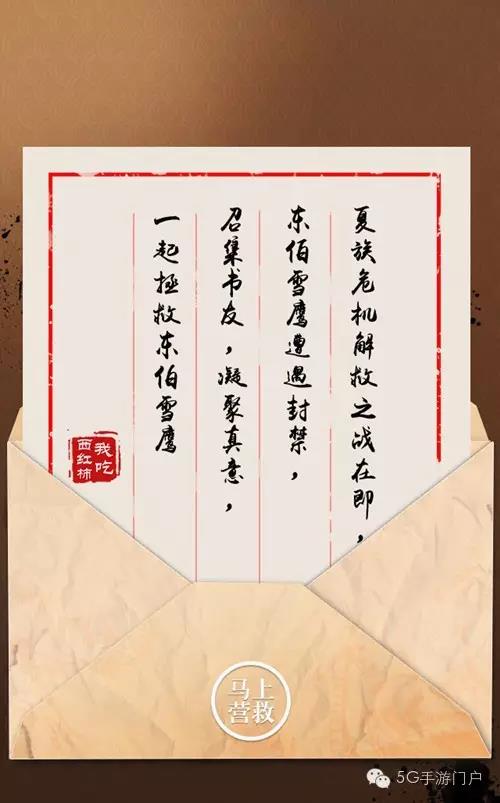 夏族危机解救之战在即，
东伯雪鹰遭遇封禁，
召集书友，凝聚真意，
一起拯救东伯雪鹰
我吃
西红柿
马上
营救
5G手游门户